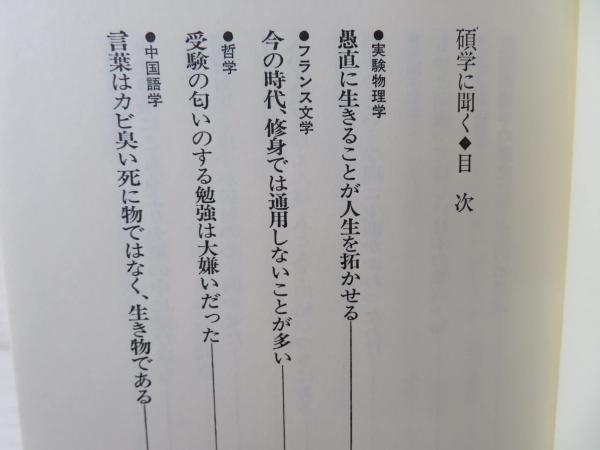 碩学に聞く◆目次
●実験物理学
愚直に生きることが人生を拓かせる
●フランス文学
今の時代、修身では通用しないことが多い
●哲学
受験の匂いのする勉強は大嫌いだった
●中国語学
言葉はカビ臭い死に物ではなく、生き物である